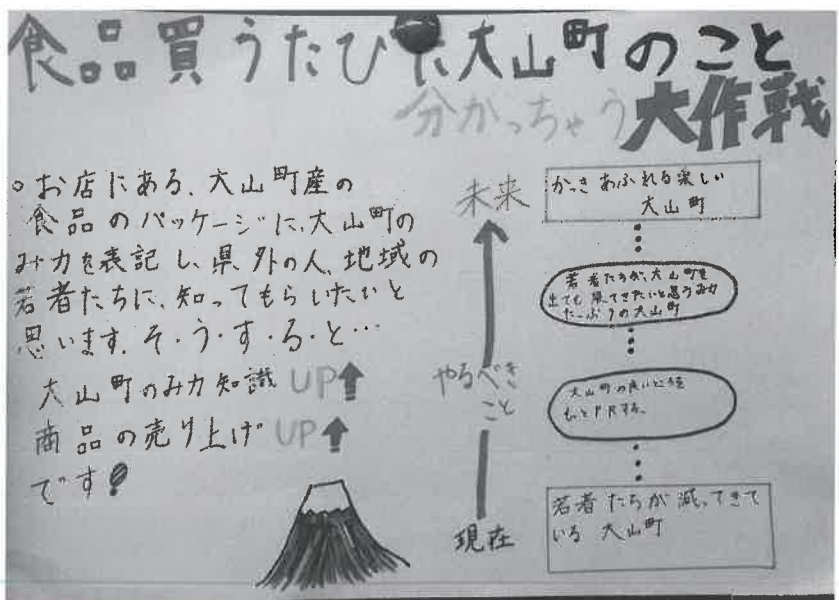 食品買うたびに大山町のこと
分かっちゃう大作戦
○お店にある、大山町産の
食品のパッケージに、大山町の
み力を表記し、県外の人、地域の
若者たちに、知ってもらいたいと
思います。そ・う・す・る・と…
大山町のみ力知識 UP↑
商品の売り上げ UP↑
です!
未来
やるべき
こと
現在
かっきあふれる楽しい
大山町
若者たちが、大山町を
出ても 帰てきたいと思うみ力
たーぷりの大山町
大山町の良いところを
もっとPRする。
若者たちが 減ってきて
いる 大山町